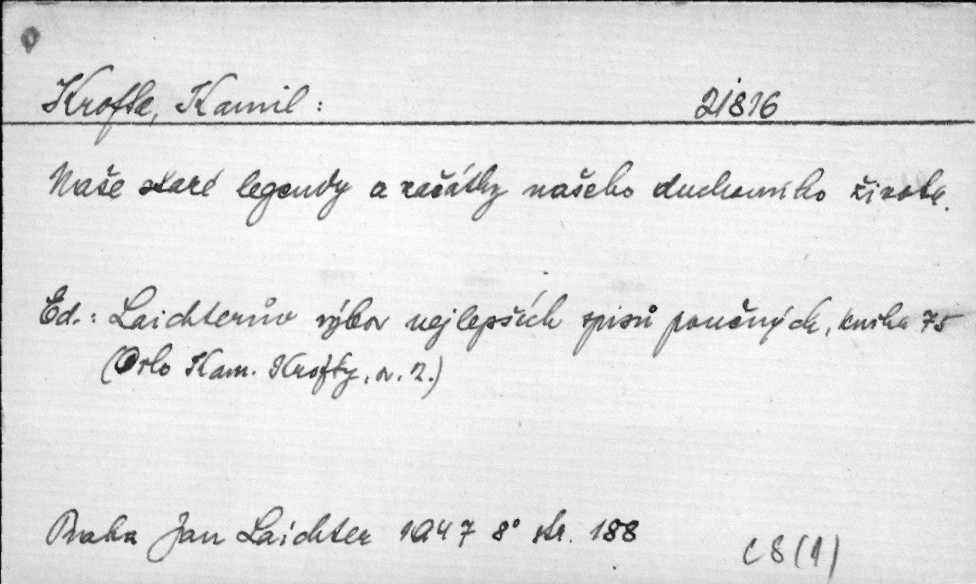 Krofta, Kamil: 21816
Naše staré legendy a začátky našeho duchovního života.
Ed.: Laichterův výbor nejlepších spisů poučných, kniha 75
(Dílo Kam. Krofty, sv. 2.)
Praha Jan Laichter 1947 8° str. 188
C8(1)